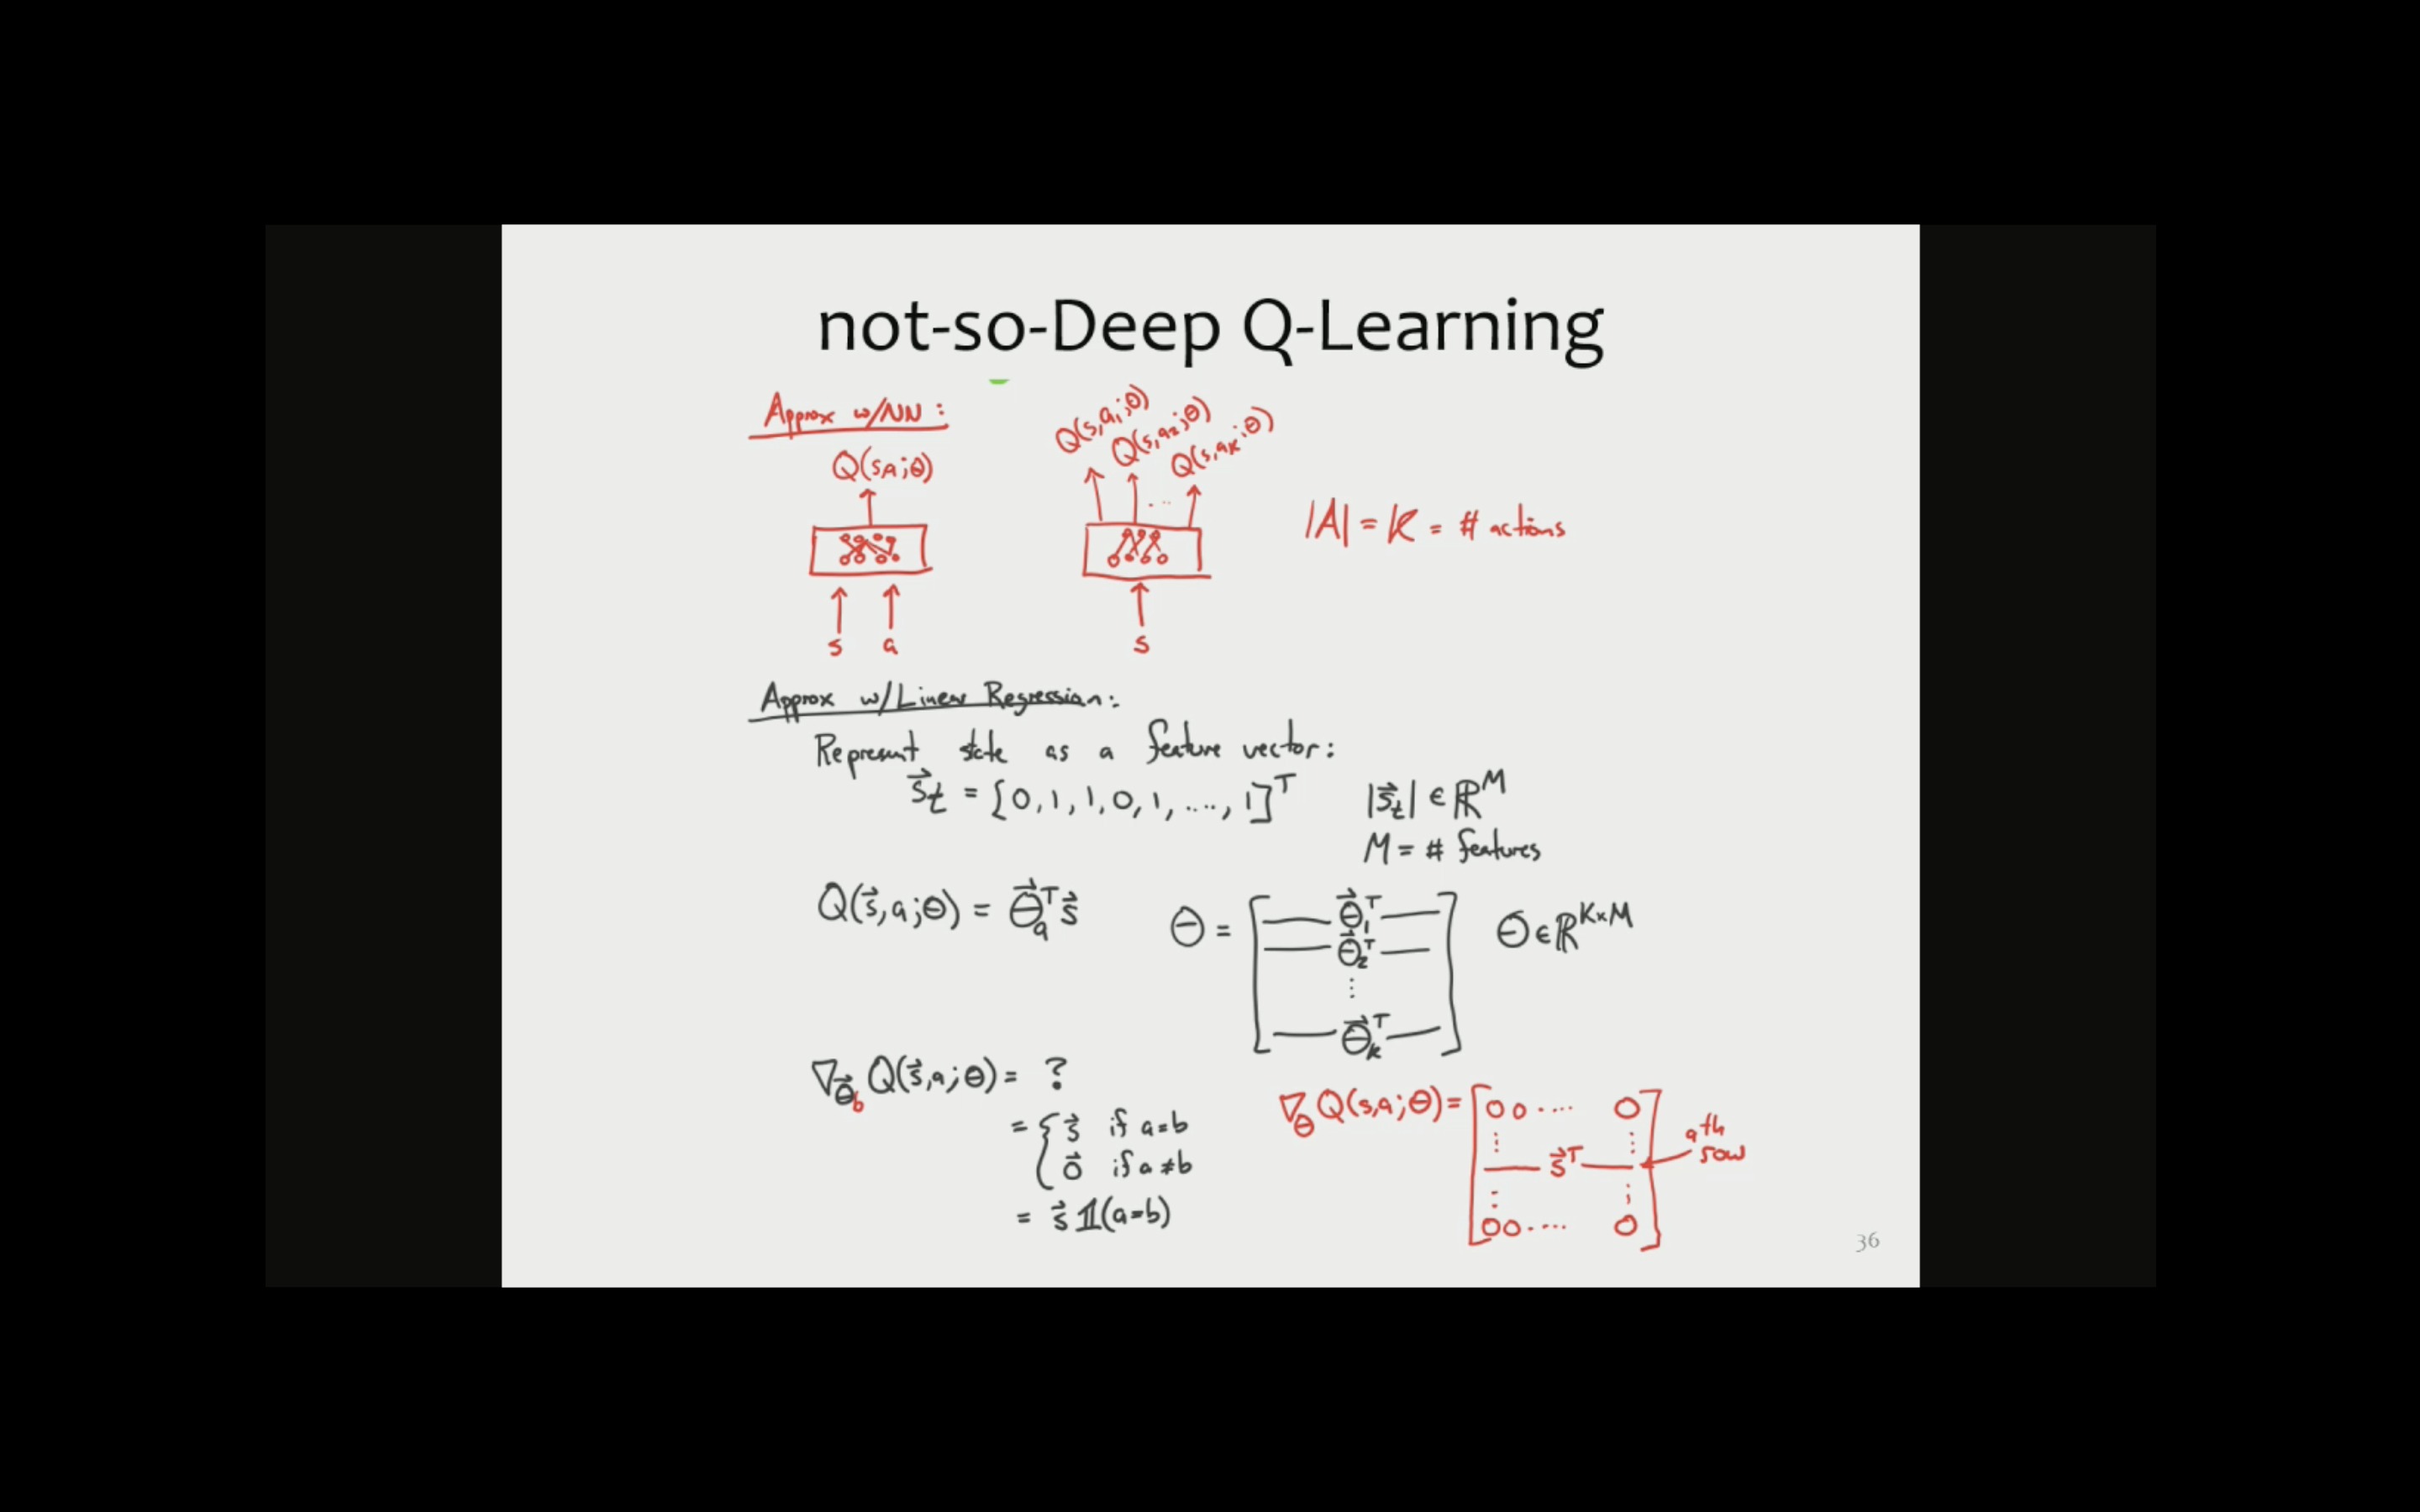 not-so-Deep Q-Learning
Approx w/NN :
Q(s,a;θ)
Q(s,a₁;θ)
Q(s,a₂;θ)
Q(s,aₖ;θ)
...
|A| = K = # actions
s a
s
Approx w/Linear Regression:
Represent state as a feature vector:
s⃗_t = [0, 1, 1, 0, 1, ..., 1]^T |s⃗_t| ∈ ℝ^M
M = # features
Q(s⃗,a;θ) = θ⃗_a^T s⃗ θ = [ — θ⃗_1^T — θ ∈ ℝ^{K×M}
— θ⃗_2^T —
⋮
— θ⃗_k^T — ]
∇_{θ⃗_b} Q(s⃗,a;θ) = ?
= { s⃗ if a=b
0⃗ if a≠b
= s⃗ 𝟙(a=b)
∇_θ Q(s,a;θ) = [ 0 0 .... 0
⋮ ⋮
— s⃗^T — ath row
⋮ ⋮
0 0 .... 0 ]
36